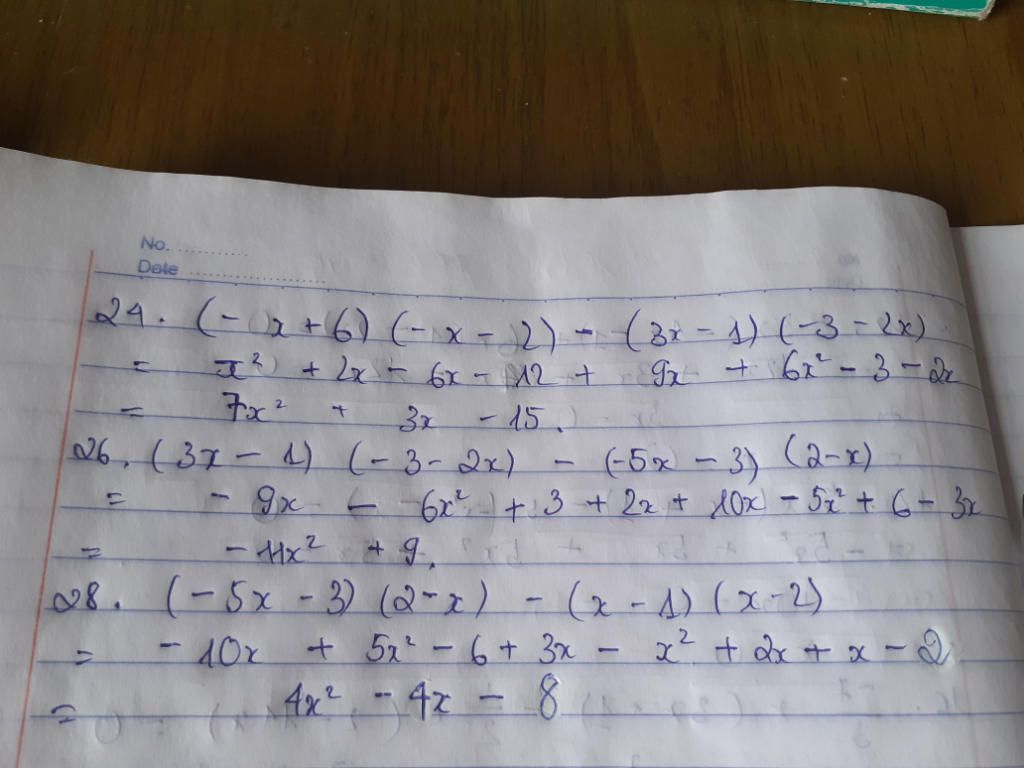 No. ............
Date ........................
24. (- x + 6) (- x - 2) - (3x - 1) (-3 - 2x)
= x² + 2x - 6x - 12 + 9x + 6x² - 3 - 2x
= 7x² + 3x - 15.
26. (3x - 1) (-3 - 2x) - (-5x - 3) (2-x)
= - 9x - 6x² + 3 + 2x + 10x - 5x² + 6 - 3x
= - 11x² + 9.
28. (-5x - 3) (2-x) - (x - 1) (x-2)
= - 10x + 5x² - 6 + 3x - x² + 2x + x - 2
= 4x² - 4x - 8